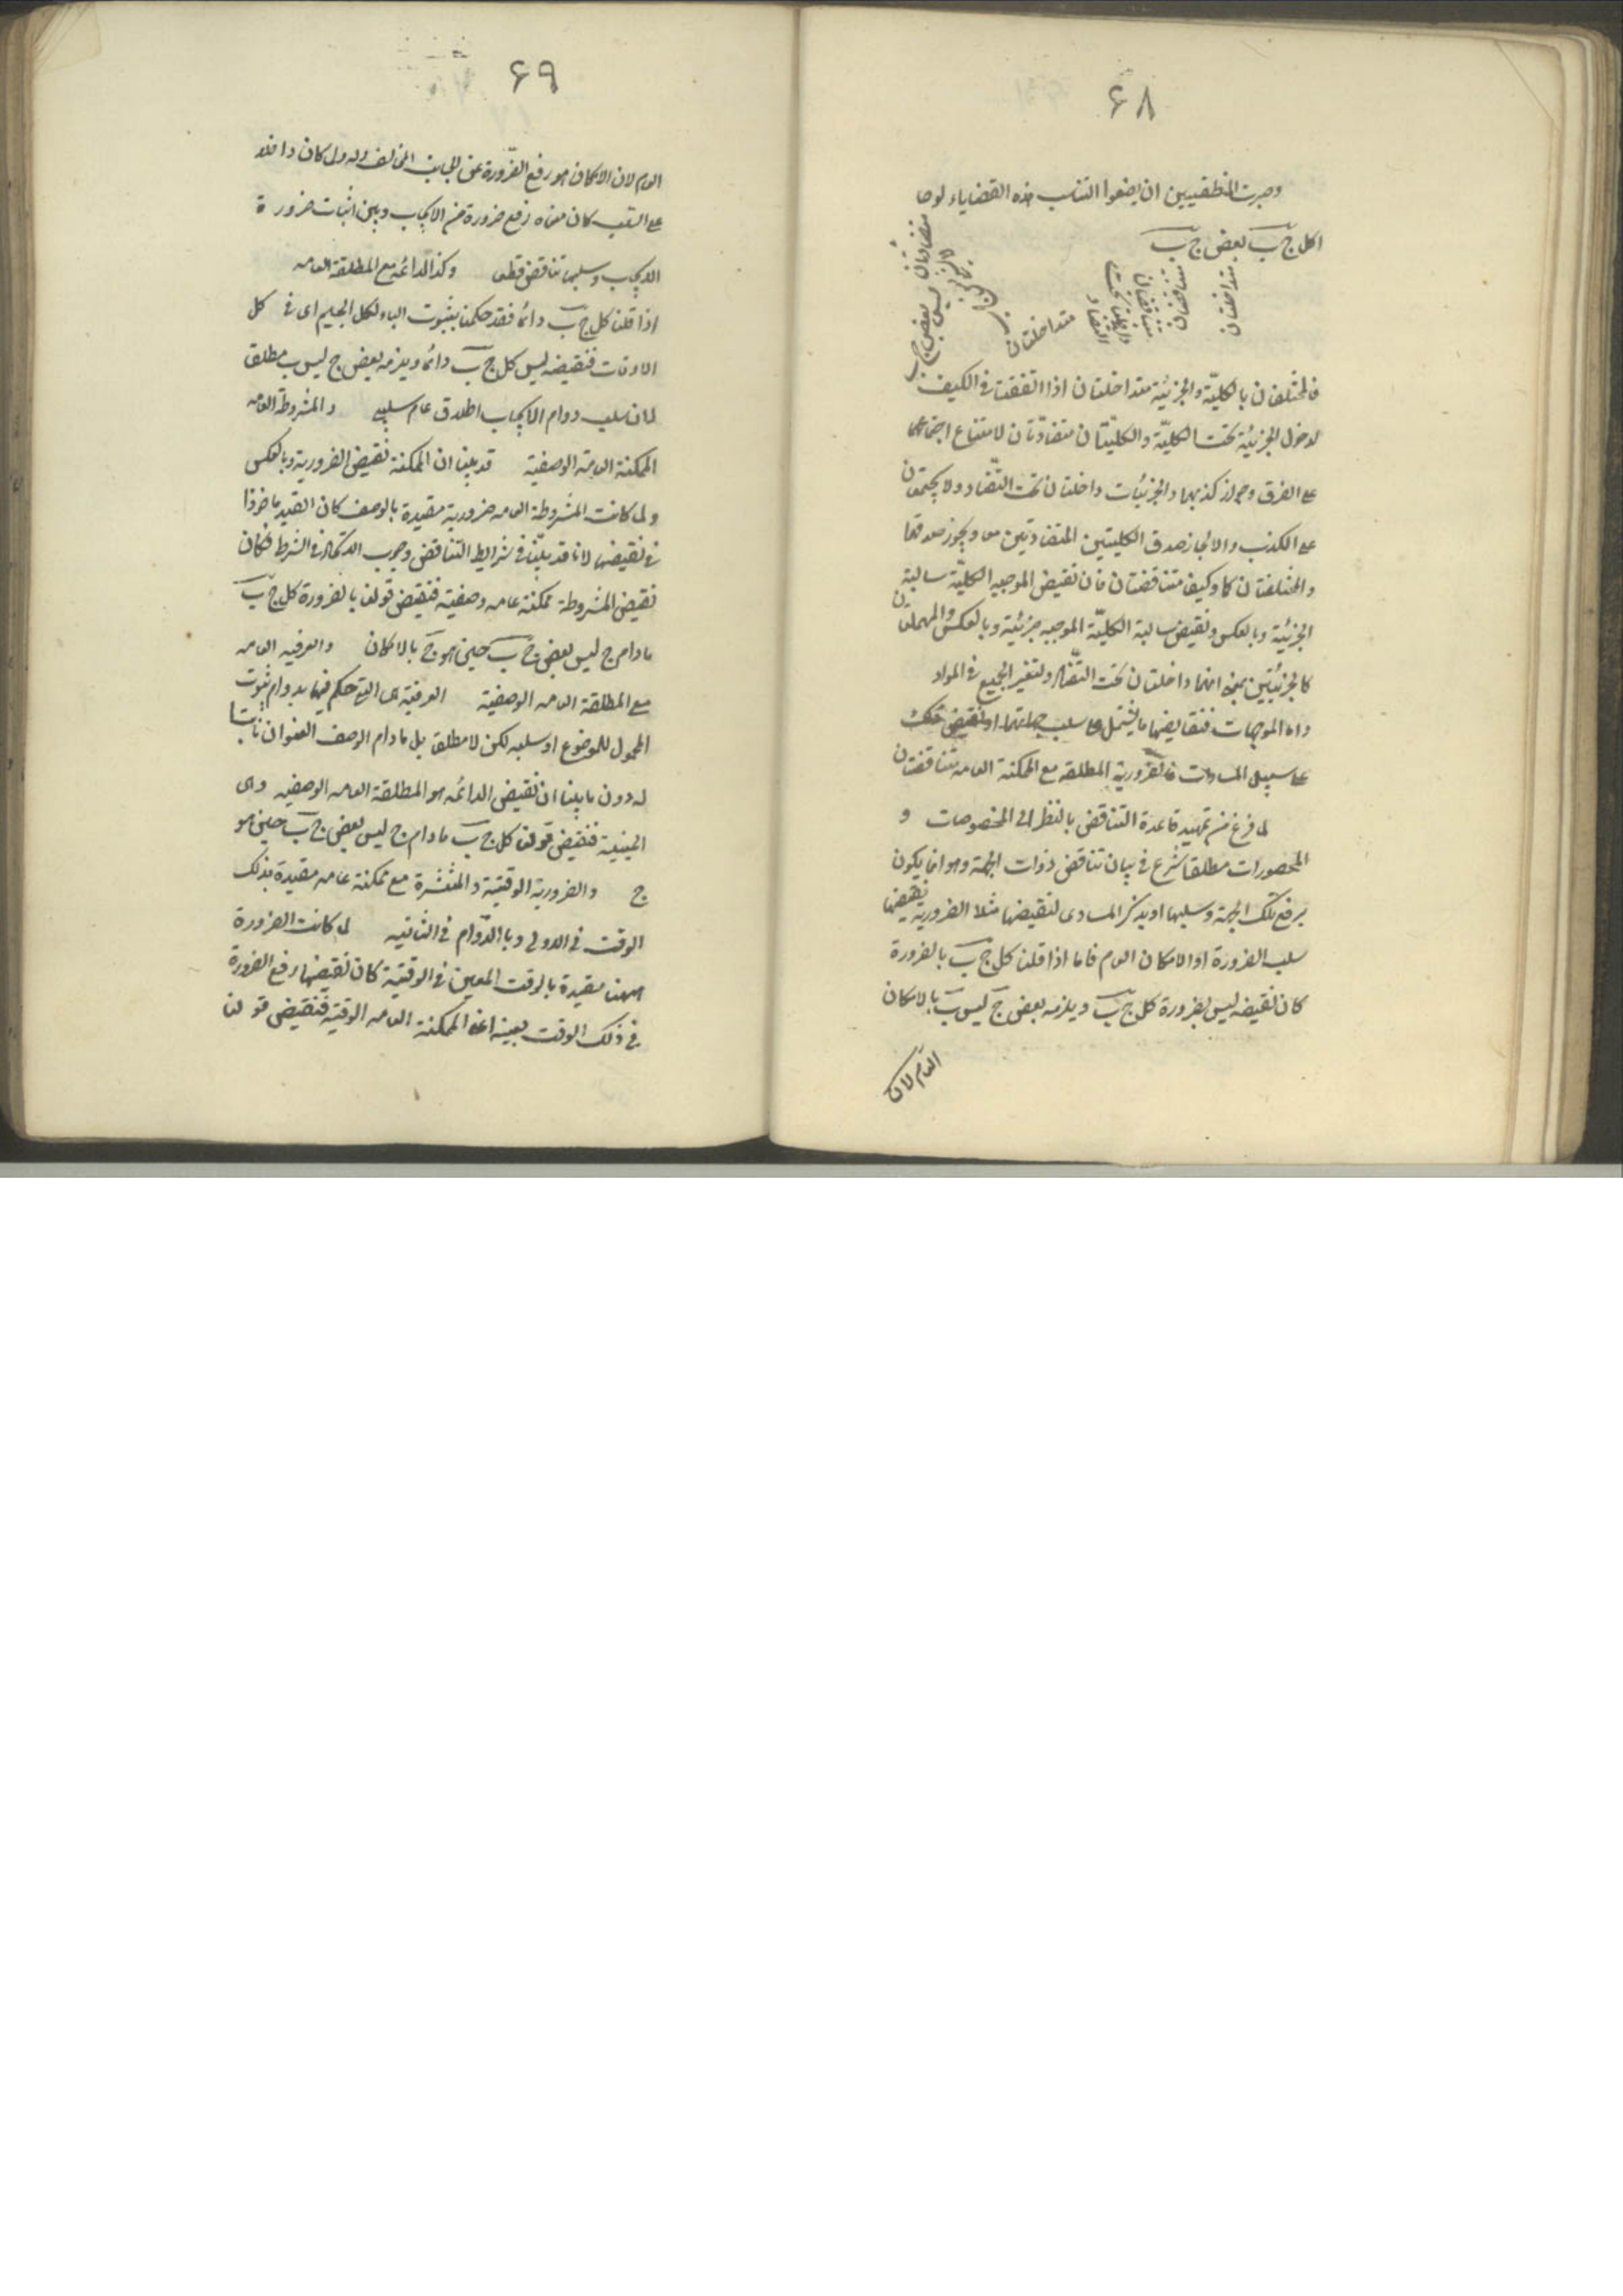 ۶۸
وجرت المنطقيين ان يضعوا التناسب هذه القضايا لوحا
كل ج ب بعض ج ب
متداخلتان
متناقضتان
متناقضتان
داخلتان تحت
التضاد
متداخلتان
متضادتان ليس بعض ج ب
فالمختلفان بالكليّة والجزئيّة متداخلتان اذا اتفقتا فى الكيف
لدخول الجزئيّة تحت الكليّة والكليّتان متضادّتان لامتناع اجتماعهما
على الصدق وجواز كذبهما والجزئيات داخلتان تحت التضاد ولا يجتمعان
على الكذب والا لجاز صدق الكليتين المتضادتين معا ويجوز صدقهما
والمختلفتان كما وكيفا متناقضتان فان نقيض الموجبه الكليّة سالبة
الجزئيّة وبالعكس ونقيض سالبة الكليّة الموجبه جزئية وبالعكس والمهملتان
كالجزئيتين بمعنى انهما داخلتان تحت التضاد ولتغير الجميع فى المواد
واما الموجهات فنقايضها ما يشتمل على سلب جهاتها او نقيض تلك
على سبيل المساوات فالضرورية المطلقه مع الممكنة العامه متناقضتان
لما فرغ من تمهيد قاعدة التناقض بالنظر الى المخصوصات و
المحصورات مطلقا شرع فى بيان تناقض ذوات الجهة وهو انما يكون
برفع تلك الجهة وسلبها او بذكر المساوى لنقيضها مثلا الضرورية نقيضها
سلب الضرورة او الامكان العام فاما اذا قلنا كل ج ب بالضرورة
كان نقيضه ليس بضرورة كل ج ب ويلزمه بعض ج ليس ب بالامكان
العام لان
۶۹
العام لان الامكان هو رفع الضّرورة عن الجانب المخالف وله ول كان داخلا
على السّلب كان معناه رفع ضرورة من الايجاب وبين اثبات ضرورة
الايجاب وسلبها تناقض قطعا وكذا الدائمه مع المطلقة العامه
اذا قلنا كل ج ب دائما فقد حكمنا بثبوت الباء لكل الجيم اى فى كل
الاوقات فنقيضه ليس كل ج ب دائما ويلزمه بعض ج ليس ب مطلقا
لان سلب دوام الايجاب اطلاق عام سلبى والمشروطة العامه
الممكنة العامّة الوصفية قد بينا ان الممكنة نقيض الضرورية وبالعكس
ولما كانت المشروطة العامه ضرورية مقيدة بالوصف كان القيد ماخوذا
فى نقيضها لانا قد بيّنا فى شرايط التناقض وجوب الاتحاد فى الشرط فكان
نقيض المشروطة ممكنة عامه وصفية فنقيض قولنا بالضرورة كل ج ب
مادام ج ليس بعض ج ب حين هو ج بالامكان والعرفيه العامه
مع المطلقة العامه الوصفية العرفية هى التى حكم فيها بدوام ثبوت
المحمول للموضوع او سلبه لكن لا مطلقا بل مادام الوصف العنوان ثابتا
له دون ما بينا ان نقيض الدائمه هو المطلقة العامه الوصفيه وهى
الحينية فنقيض قولنا كل ج ب مادام ج ليس بعض ج ب حين هو
ج والضرورية الوقتية والمنتشرة مع ممكنة عامه مقيدة بذلك
الوقت فى الاولى وبالدّوام فى الثانيه لما كانت الضرورة
ههنا مقيدة بالوقت المعين فى الوقتية كان نقيضها رفع الضرورة
فى ذلك الوقت بعينه اعنى الممكنة العامه الوقتية فنقيض قولنا